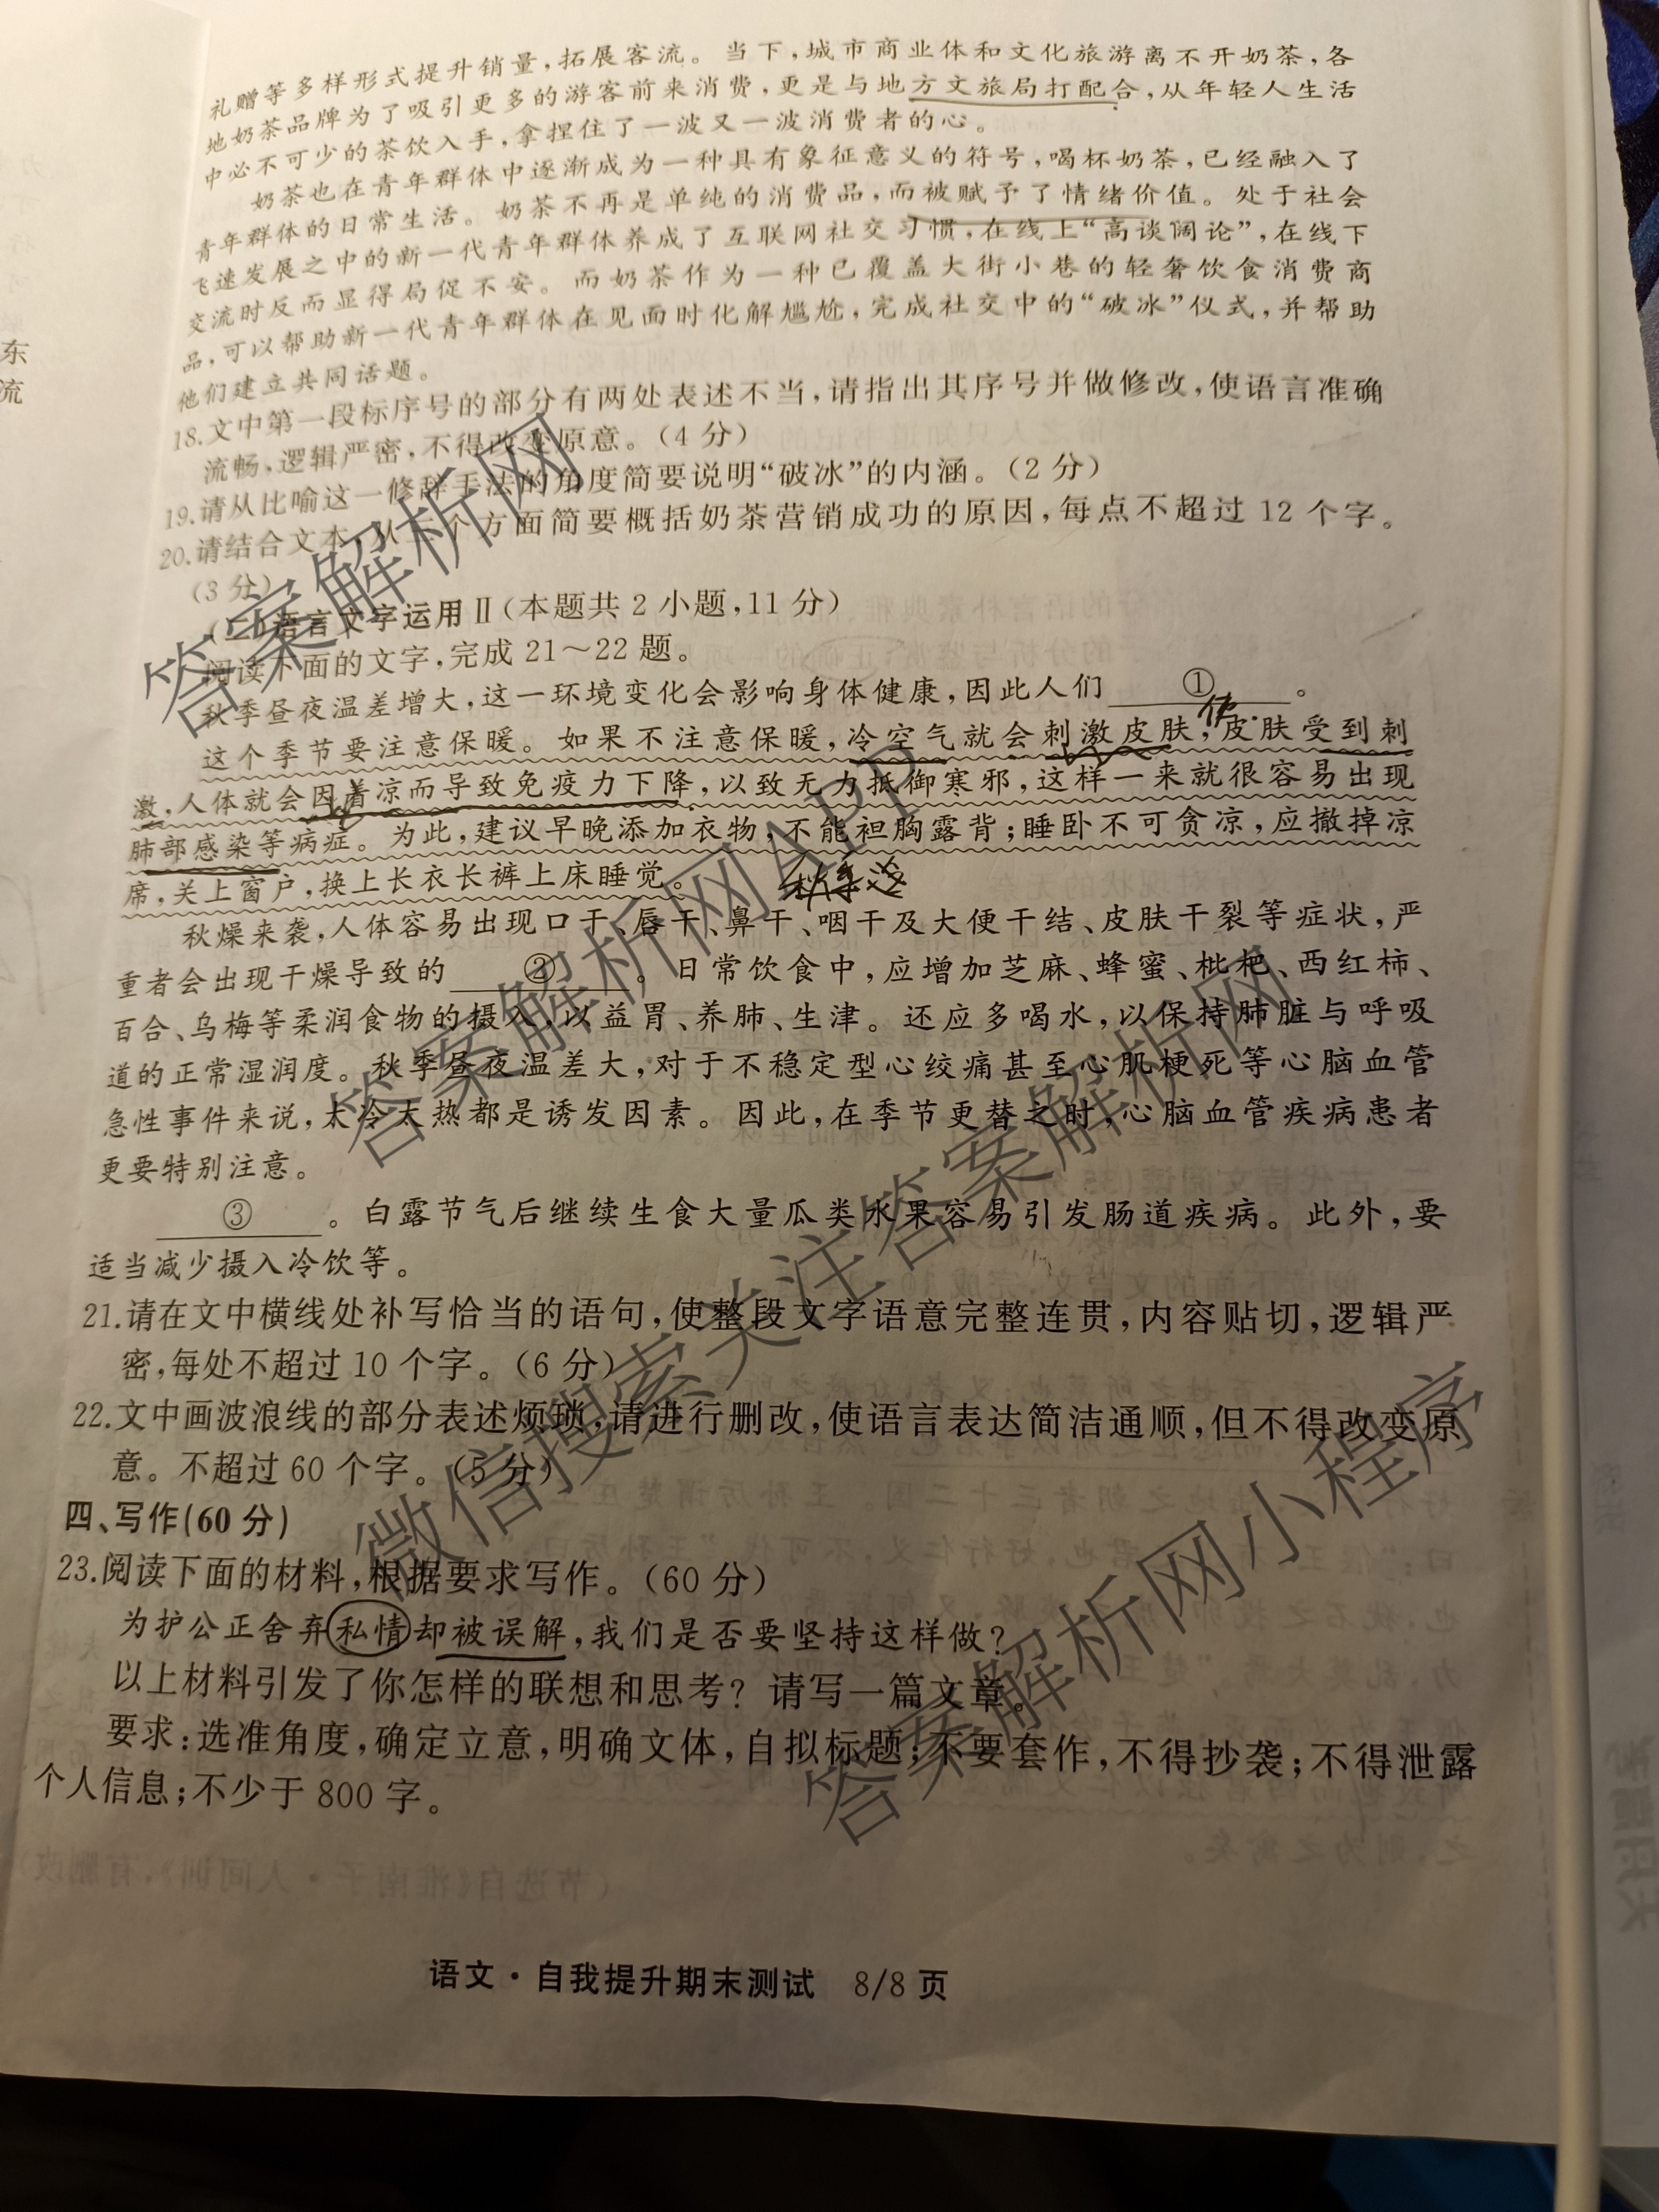 礼赠等多样形式提升销量,拓展客流。当下,城市商业体和文化旅游离不开奶茶,各
地奶茶品牌为了吸引更多的游客前来消费,更是与地方文旅局打配合,从年轻人生活
中必不可少的茶饮入手,拿捏住了一波又一波消费者的心。
奶茶也在青年群体中逐渐成为一种具有象征意义的符号,喝杯奶茶,已经融入了
青年群体的日常生活。奶茶不再是单纯的消费品,而被赋予了情绪价值。处于社会
飞速发展之中的新一代青年群体养成了互联网社交习惯,在线上“高谈阔论”,在线下
交流时反而显得局促不安。而奶茶作为一种已覆盖大街小巷的轻奢饮食消费商
品,可以帮助新一代青年群体在见面时化解尴尬,完成社交中的“破冰”仪式,并帮助
他们建立共同话题。
18.文中第一段标序号的部分有两处表述不当,请指出其序号并做修改,使语言准确
流畅,逻辑严密,不得改变原意。(4 分)
19.请从比喻这一修辞手法的角度简要说明“破冰”的内涵。(2 分)
20.请结合文本,从三个方面简要概括奶茶营销成功的原因,每点不超过 12 个字。
(3 分)
(二)语言文字运用Ⅱ(本题共 2 小题,11 分)
阅读下面的文字,完成 21~22 题。
秋季昼夜温差增大,这一环境变化会影响身体健康,因此人们 ① 。
这个季节要注意保暖。如果不注意保暖,冷空气就会刺激皮肤,皮肤受到刺
激,人体就会因着凉而导致免疫力下降,以致无力抵御寒邪,这样一来就很容易出现
肺部感染等病症。为此,建议早晚添加衣物,不能袒胸露背;睡卧不可贪凉,应撤掉凉
席,关上窗户,换上长衣长裤上床睡觉。
秋燥来袭,人体容易出现口干、唇干、鼻干、咽干及大便干结、皮肤干裂等症状,严
重者会出现干燥导致的 ② 。日常饮食中,应增加芝麻、蜂蜜、枇杷、西红柿、
百合、乌梅等柔润食物的摄入,以益胃、养肺、生津。还应多喝水,以保持肺脏与呼吸
道的正常湿润度。秋季昼夜温差大,对于不稳定型心绞痛甚至心肌梗死等心脑血管
急性事件来说,太冷太热都是诱发因素。因此,在季节更替之时,心脑血管疾病患者
更要特别注意。
③ 。白露节气后继续生食大量瓜类水果容易引发肠道疾病。此外,要
适当减少摄入冷饮等。
21.请在文中横线处补写恰当的语句,使整段文字语意完整连贯,内容贴切,逻辑严
密,每处不超过 10 个字。(6 分)
22.文中画波浪线的部分表述烦琐,请进行删改,使语言表达简洁通顺,但不得改变原
意。不超过 60 个字。(5 分)
四、写作(60 分)
23.阅读下面的材料,根据要求写作。(60 分)
为护公正舍弃私情却被误解,我们是否要坚持这样做?
以上材料引发了你怎样的联想和思考?请写一篇文章。
要求:选准角度,确定立意,明确文体,自拟标题;不要套作,不得抄袭;不得泄露
个人信息;不少于 800 字。
语文·自我提升期末测试 8/8 页
东
流
答案解析网
答案解析网APP
微信搜索关注答案解析网
答案解析网小程序